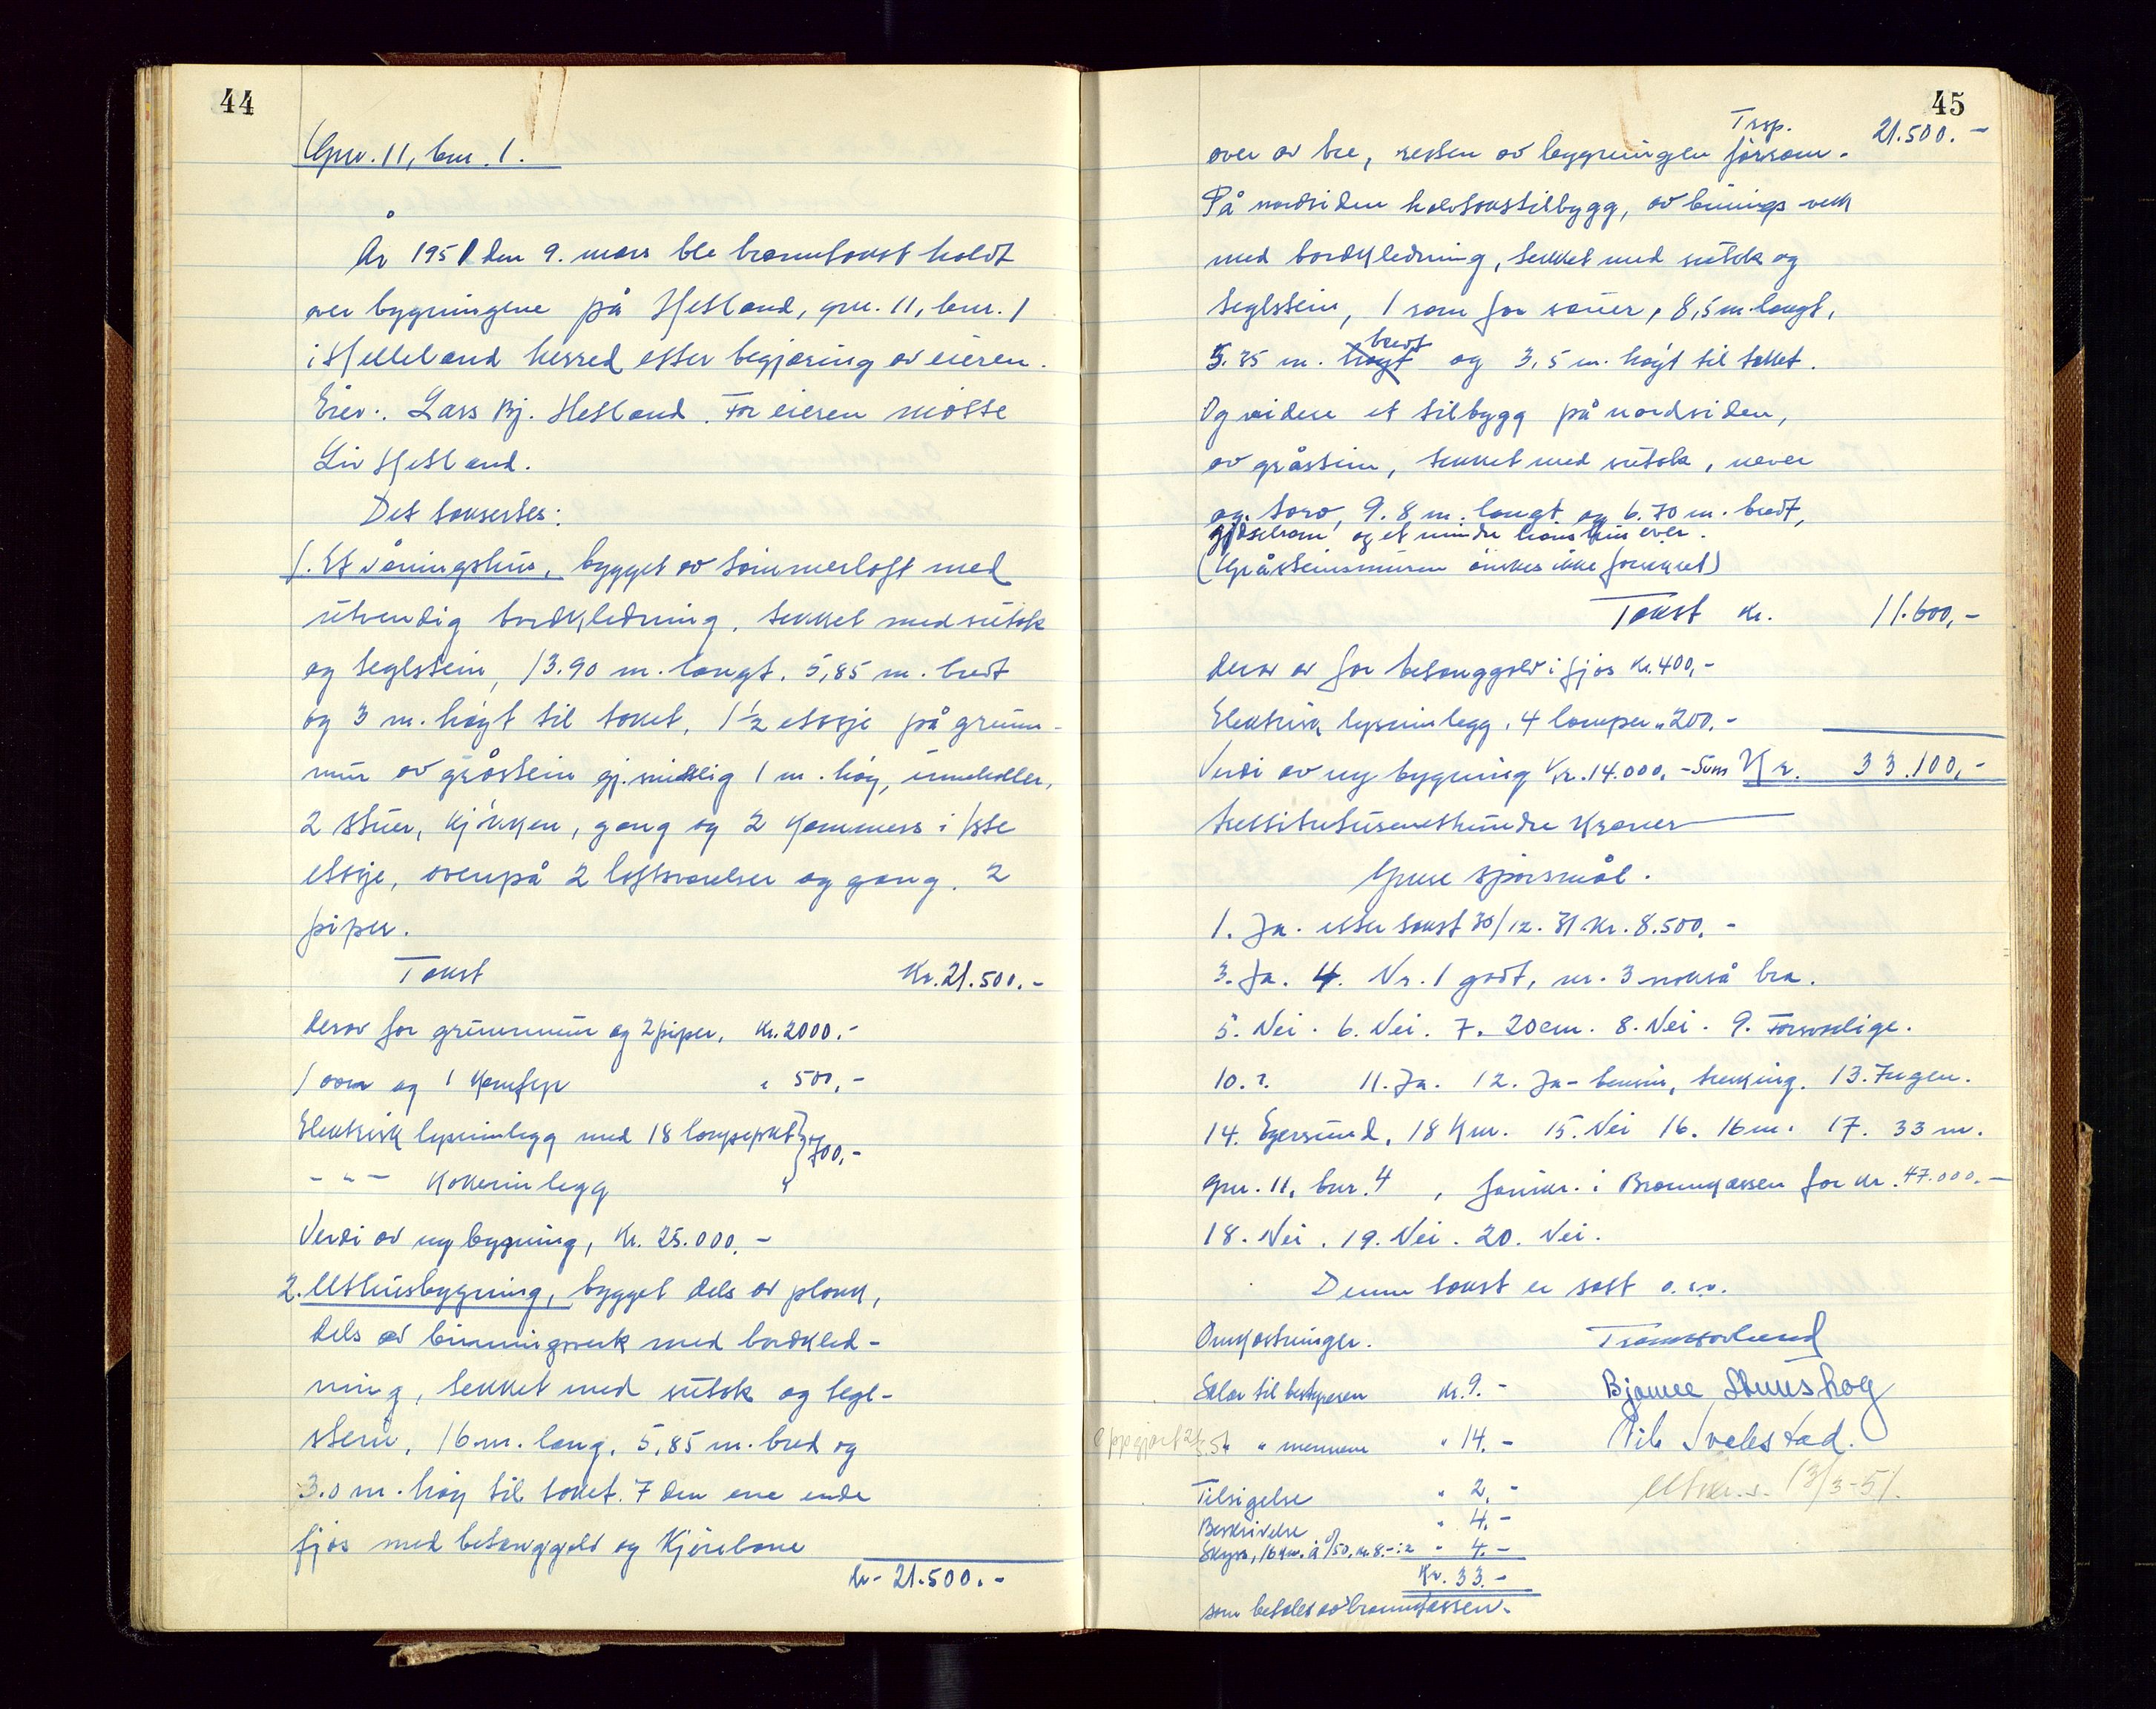 44
Gnr. 11, bnr. 1.
År 1951 den 9. mars ble branntakst holdt
over bygningene på Hetland, gnr. 11, bnr. 1
i Helleland herred etter begjæring av eieren.
Eier: Lars Bj. Hetland. For eieren møtte
Liv Hetland.
Det takseres:
1. Et våningshus, bygget av tømmerloft med
utvendig bordkledning, tekket med sutak
og teglstein, 13.90 m. langt, 5,85 m. bredt
og 3 m. høgt til taket, 1½ etasje på grunn-
mur av gråstein gj.snittlig 1 m. høg, inneholder,
2 stuer, kjøkken, gang og 2 kammers i 1ste
etasje, ovenpå 2 loftsværelser og gang. 2
piper.
Takst Kr. 21.500.-
Derav for grunnmur og 2 piper, kr. 2000.-
1 ovn og 1 komfyr " 500,-
Elektrisk lysinnlegg med 18 lampepkt } 700,-
- " - kokerinnlegg
Verdi av ny bygning, kr. 25.000.-
2. Uthusbygning, bygget dels av plank,
dels av binningsverk med bordkled-
ning, tekket med sutak og tegl-
stein, 16 m. lang, 5,85 m. bred og
3.0 m. høg til taket. I den ene ende
fjøs med betonggolv og kjørebane
kr. 21.500.-
45
Trsp. 21.500.-
over av tre, resten av bygningen fôrrom.
På nordsiden halvtakstilbygg, av binningsverk
med bordkledning, tekket med sutak og
teglstein, 1 rom for sauer, 8,5 m. langt,
5.35 m. høgt bredt og 3,5 m. høgt til taket.
Og videre et tilbygg på nordsiden,
av gråstein, tekket med sutak, never
og torv, 9.8 m. langt og 6.70 m. bredt,
gjødselrom og et mindre hønshus over.
(Gråsteinsmuren ønskes ikke forsikret)
Takst kr. 11.600,-
derav er for betonggolv i fjøs kr. 400,-
Elektrisk lysinnlegg, 4 lamper " 200.-
Verdi av ny bygning kr. 14.000.- Sum Kr. 33.100,-
trettitretusenetthundre kroner
Gene spørsmål.
1. Ja. etter takst 30/12. 31 kr. 8.500.-
3. Ja. 4. Nr. 1 godt, nr. 3 nokså bra.
5. Nei. 6. Nei. 7. 20 cm. 8. Nei. 9. Forsvarlige.
10. ?. 11. Ja. 12. Ja - bensin, trekking. 13. Ingen.
14. Egersund, 18 km. 15. Nei 16. 16 m. 17. 33 m.
gnr. 11, bnr. 4, forsikr. i Brannkassen for kr. 47.000.-
18. Nei. 19. Nei. 20. Nei.
Denne takst er satt o.s.v.
Omkostninger.
Salær til bestyreren kr. 9.-
Bjarne Stuushog
" " mennene " 14.-
Nils Svelstad.
Tilsigelse " 2.-
Utskr. s. 13/3-51.
Beskrivelse " 4.-
Skyss, 16 km. à 0/50. kr. 8.-:2 " 4.-
Kr. 33.-
som betales av brannkassen.